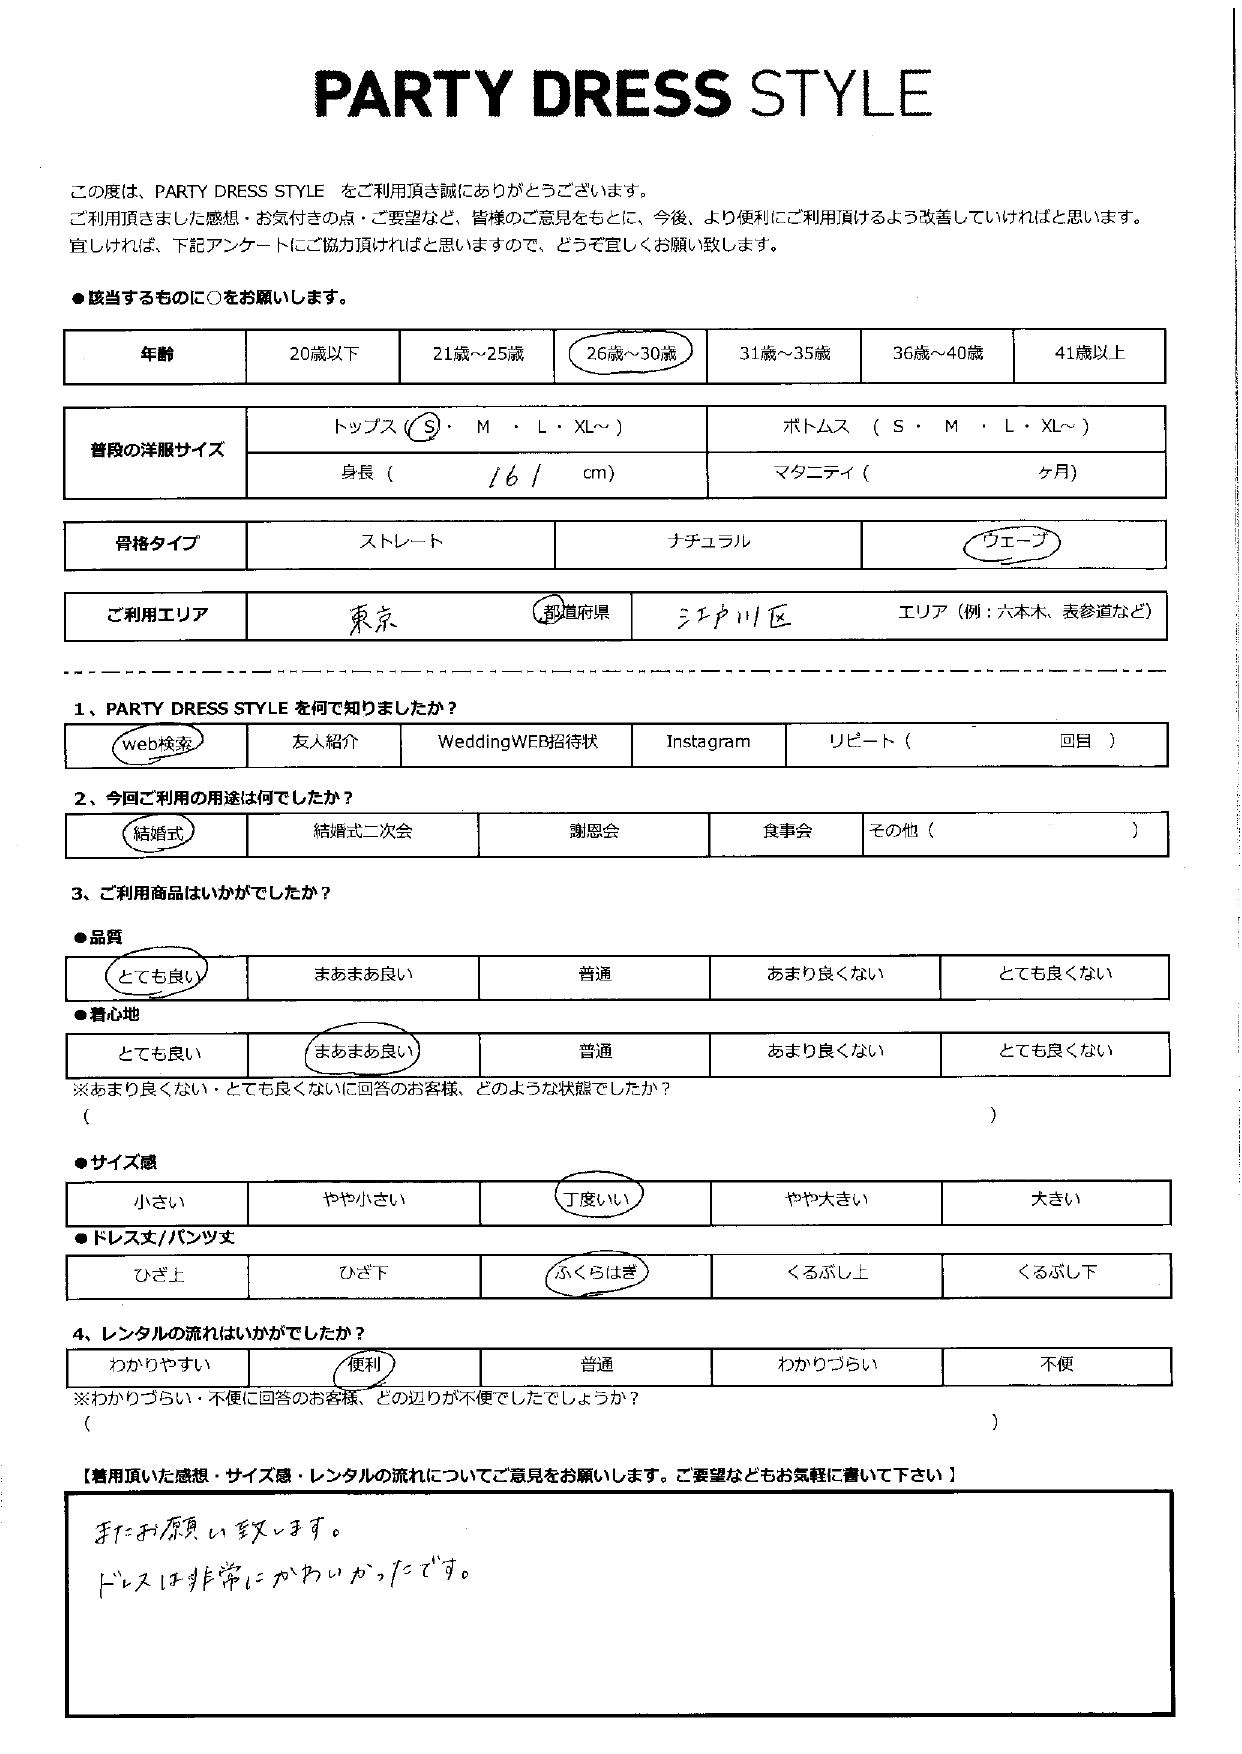 PARTY DRESS STYLE
この度は、PARTY DRESS STYLE をご利用頂き誠にありがとうございます。
ご利用頂きました感想・お気付きの点・ご要望など、皆様のご意見をもとに、今後、より便利にご利用頂けるよう改善していければと思います。
宜しければ、下記アンケートにご協力頂ければと思いますので、どうぞ宜しくお願い致します。
●該当するものに○をお願いします。
年齢 20歳以下 21歳～25歳 26歳～30歳 31歳～35歳 36歳～40歳 41歳以上
普段の洋服サイズ トップス ( S ・ M ・ L ・ XL～ ) ボトムス ( S ・ M ・ L ・ XL～ )
身長 ( 161 cm) マタニティ ( ヶ月)
骨格タイプ ストレート ナチュラル ウェーブ
ご利用エリア 東京 都道府県 江戸川区 エリア（例：六本木、表参道など）
1、PARTY DRESS STYLE を何で知りましたか？
web検索 友人紹介 WeddingWEB招待状 Instagram リピート ( 回目 )
2、今回ご利用の用途は何でしたか？
結婚式 結婚式二次会 謝恩会 食事会 その他 ( )
3、ご利用商品はいかがでしたか？
●品質
とても良い まあまあ良い 普通 あまり良くない とても良くない
●着心地
とても良い まあまあ良い 普通 あまり良くない とても良くない
※あまり良くない・とても良くないに回答のお客様、どのような状態でしたか？
( )
●サイズ感
小さい やや小さい 丁度いい やや大きい 大きい
●ドレス丈/パンツ丈
ひざ上 ひざ下 ふくらはぎ くるぶし上 くるぶし下
4、レンタルの流れはいかがでしたか？
わかりやすい 便利 普通 わかりづらい 不便
※わかりづらい・不便に回答のお客様、どの辺りが不便でしたでしょうか？
( )
【着用頂いた感想・サイズ感・レンタルの流れについてご意見をお願いします。ご要望などもお気軽に書いて下さい】
またお願い致します。
ドレスは非常にかわいかったです。